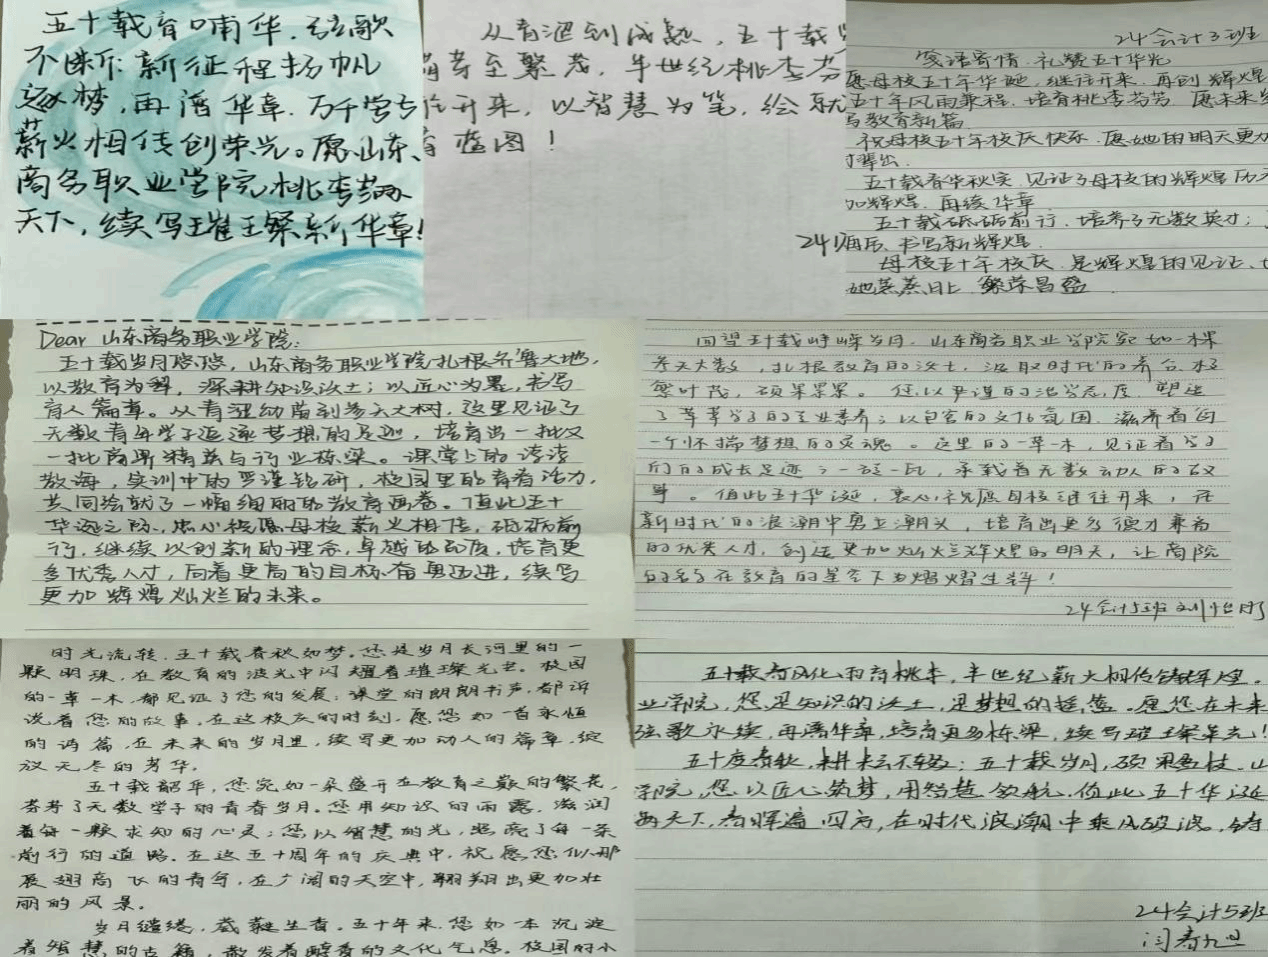 五十载育时华,弦歌
不断新征程扬帆
逐梦,再谱华章,万千学
薪火相传创荣光。愿山东
商务职业学院桃李
天下,续写璀璨新华章!
从青涩到成熟,五十载
至繁茂,半世纪桃李芬
往开来,以智慧为笔,绘就
蓝图!
24会计3班
寄情,礼赞五十华光
愿母校五十年华诞,继往开来,再创辉煌
五十年风雨兼程,培育桃李芬芳,愿未来
写教育新篇
祝母校五十年校庆快乐,愿她的明天更加
辈出.
五十载春华秋实,见证了母校的辉煌历
加辉煌,再续华章
五十载砥砺前行,培养了无数英才;
书写新辉煌.
母校五十年校庆,是辉煌的见证、
她蒸蒸日上 繁荣昌盛
Dear 山东商务职业学院:
五十载岁月悠悠,山东商务职业学院扎根齐鲁大地,
以教育为犁,深耕知识沃土;以匠心为墨,书写
育人篇章。从青涩幼苗到参天大树,这里见证了
无数青年学子追逐梦想的足迹,培育出一批又
一批商界精英与行业栋梁。课堂上的谆谆
教诲,实训中的严谨钻研,校园里的青春活力,
共同绘就了一幅绚丽的教育画卷。值此五十
华诞之际,衷心祝愿母校薪火相传,砥砺前
行,继续以创新的理念,卓越的品质,培育更
多优秀人才,向着更高的目标奋勇迈进,续写
更加辉煌灿烂的未来。
回望五十载峥嵘岁月,山东商务职业学院宛如一棵
参天大树,扎根教育的沃土,汲取时代的养分,枝
繁叶茂,硕果累累。您以严谨的治学态度,塑造
了莘莘学子的专业素养;以包容的文化氛围,滋养着每
一个怀揣梦想的灵魂。这里的一草一木,见证着学子
们的成长足迹;一砖一瓦,承载着无数动人的故
事。值此五十华诞,衷心祝愿母校继往开来,在
新时代的浪潮中勇立潮头,培育出更多德才兼备
的优秀人才,创造更加灿烂辉煌的明天,让商院
的名字在教育的星空下为熠熠生辉!
24会计5班 刘怡彤
时光流转,五十载春秋如梦。您是岁月长河里的一
颗明珠,在教育的波光中闪耀着璀璨光芒。校园
的一草一木,都见证了您的发展;课堂的朗朗书声,都诉
说着您的故事。在这校庆的时刻,愿您如一首永恒
的诗篇,在未来的岁月里,续写更加动人的篇章,绽
放无尽的芳华。
五十载韶华,您宛如一朵盛开在教育之巅的繁花,
芬芳了无数学子的青春岁月。您用知识的雨露,滋润
着每一颗求知的心灵;您以智慧的光,照亮了每一条
前行的道路。在这五十周年的庆典中,祝愿您似那
展翅高飞的青鸟,在广阔的天空中,翱翔出更加壮
丽的风景。
岁月缱绻,葳蕤生香。五十年来,您如一本沉淀
着智慧的古籍,散发着醇香的文化气息。校园的小
五十载春风化雨育桃李,半世纪薪火相传铸辉煌。
业学院,您是知识的沃土,是梦想的摇篮。愿您在未来
弦歌永续,再谱华章,培育更多栋梁,续写璀璨荣光!
五十度春秋,耕耘不辍;五十载岁月,硕果盈枝。山
学院,您以匠心筑梦,用智慧领航。值此五十华诞
满天下,春晖遍四方,在时代浪潮中乘风破浪,铸
24会计5班
闫春旭